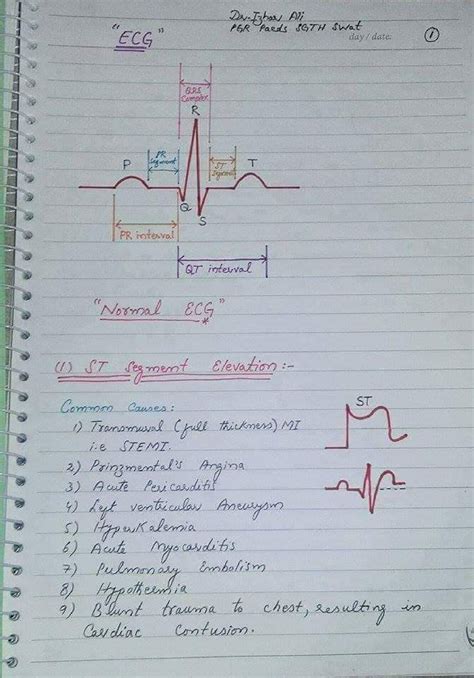 Dr. Izhar Ali
PGR Paeds SGTH Swat
day / date:
1
"ECG"
QRS
Complex
R
PR
Segment
P
ST
Segment
T
Q
S
PR interval
QT interval
"Normal ECG"
(1) ST Segment Elevation :-
Common Causes :
ST
1) Transmural (full thickness) MI
i.e STEMI.
2) Prinzmental's Angina
3) Acute Pericarditis
4) Left ventricular Aneurysm
5) HyperKalemia
6) Acute Myocarditis
7) Pulmonary Embolism
8) Hypothermia
9) Blunt trauma to chest, resulting in
Cardiac Contusion.